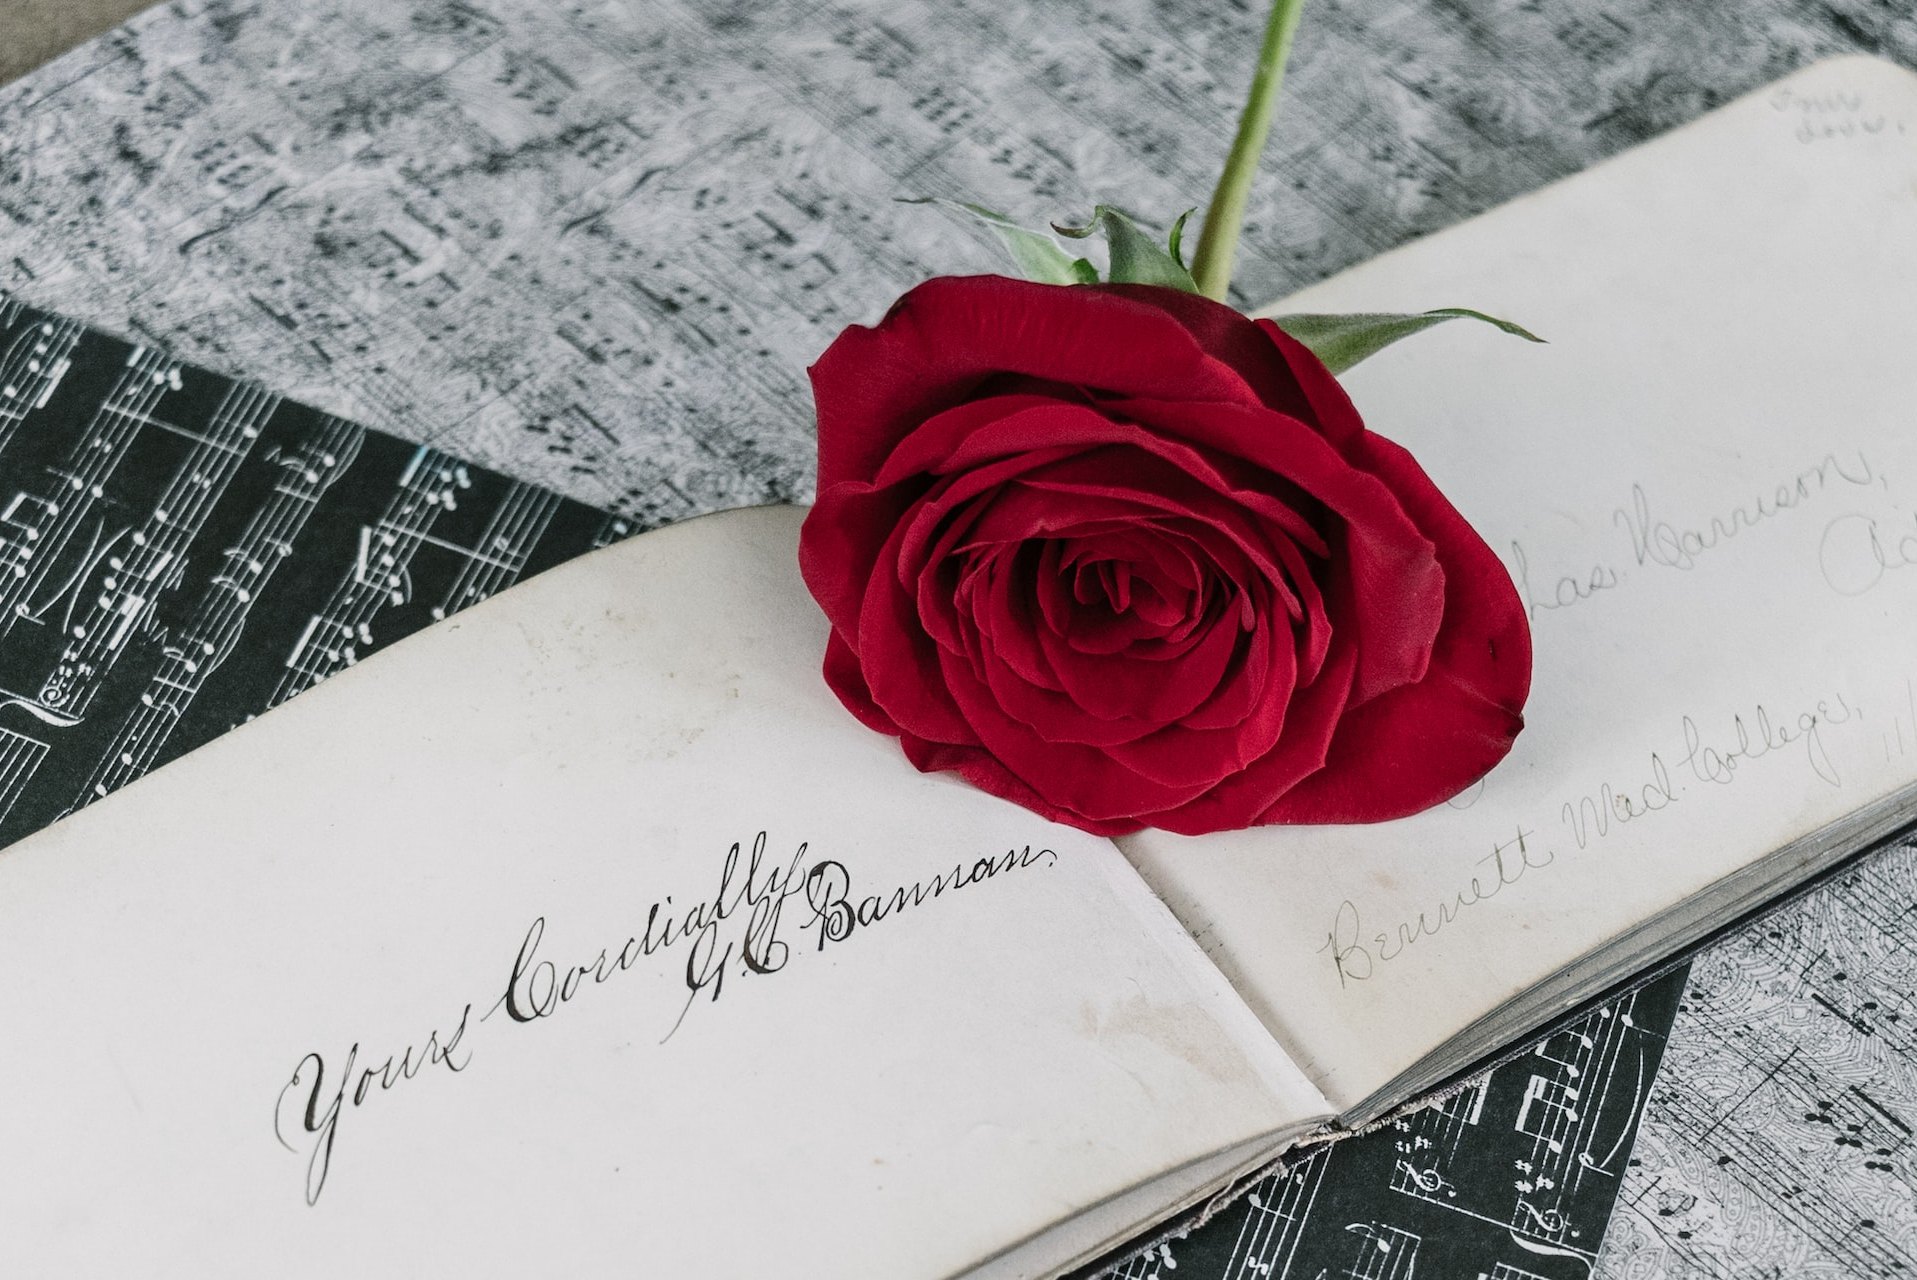 Yours Cordially,
G. C. Bannan.
Harrison,
Bennett Med. College,